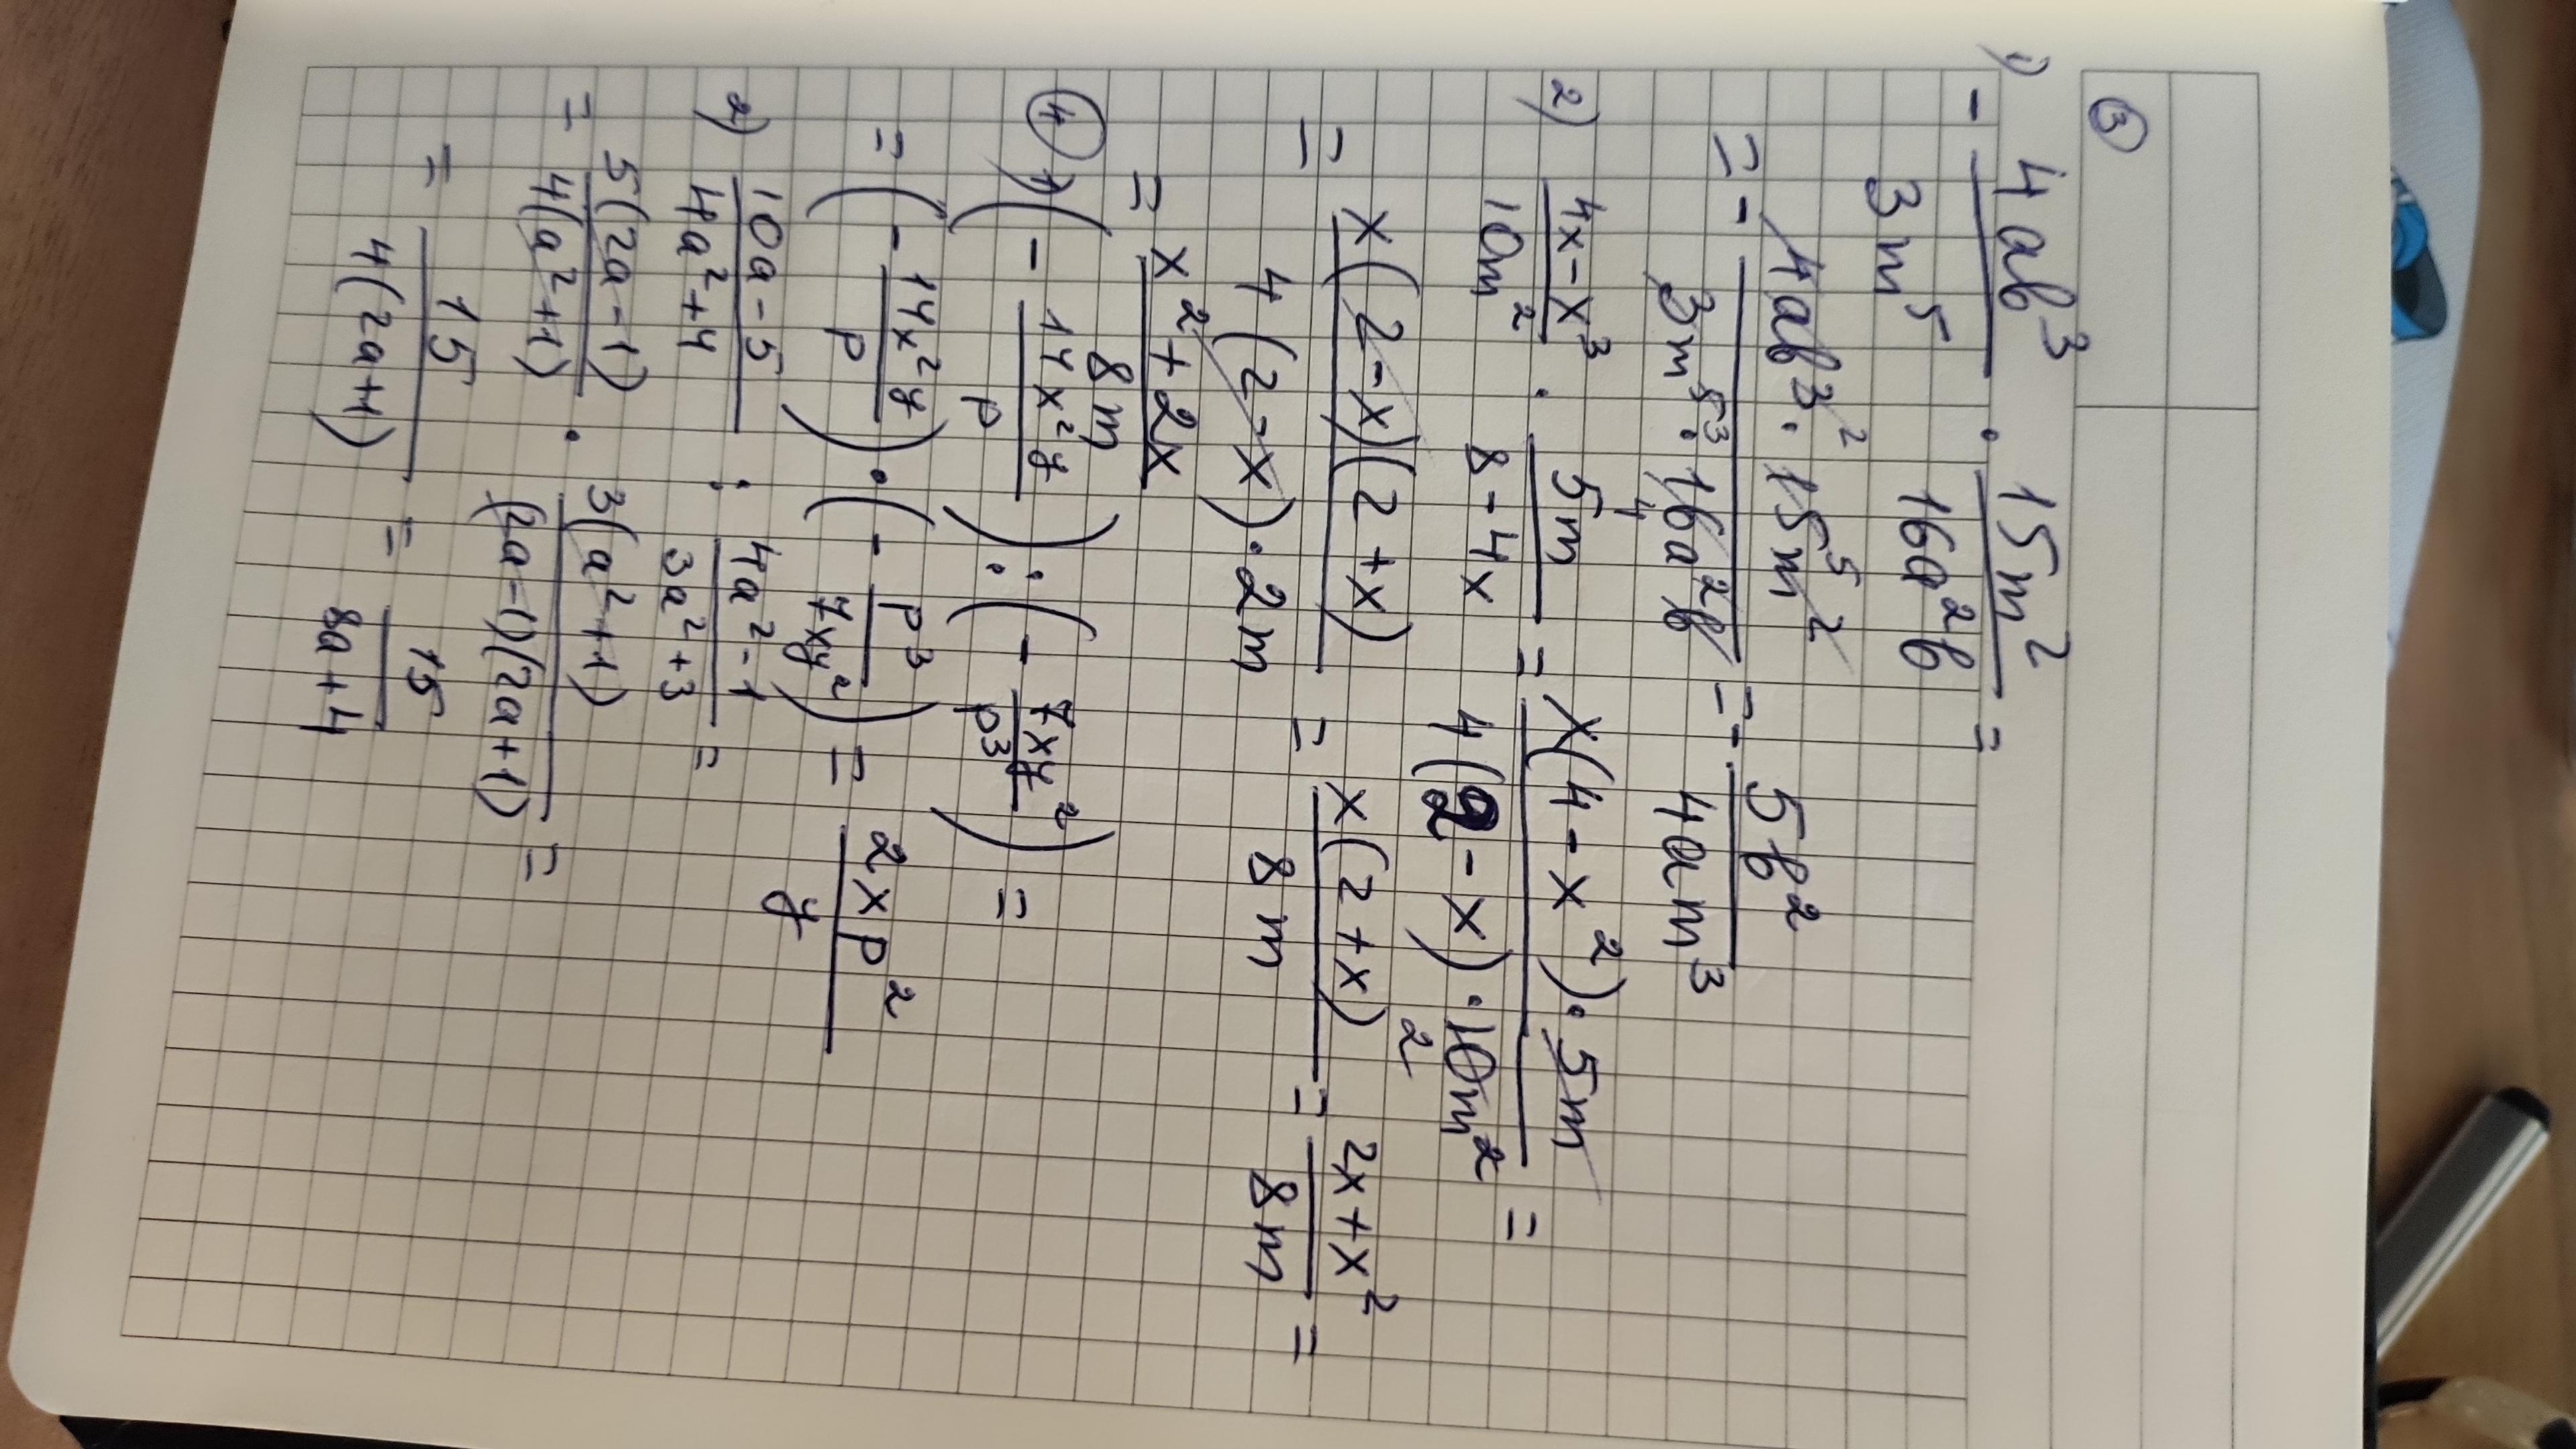 ③
1) - 4ab³/3m⁵ · 15m²/16a²b =
= - 4ab³² · 15⁵m²/3m⁵³ · 16₄a²b = - 5b²/4am³
2) 4x-x³/10m² · 5m/8-4x = x(4-x²) · 5m/4(2-x) · 10₂m² =
= x(2-x)(2+x)/4(2-x) · 2m = x(2+x)/8m = 2x+x²/8m =
= x²+2x/8m
④ 1) (- 14x²y/p) : (- 7xy²/p³) =
= (- 14x²y/p) · (- p³/7xy²) = 2xp²/y
2) 10a-5/4a²+4 : 4a²-1/3a²+3 =
= 5(2a-1)/4(a²+1) · 3(a²+1)/(2a-1)(2a+1) =
= 15/4(2a+1) = 15/8a+4